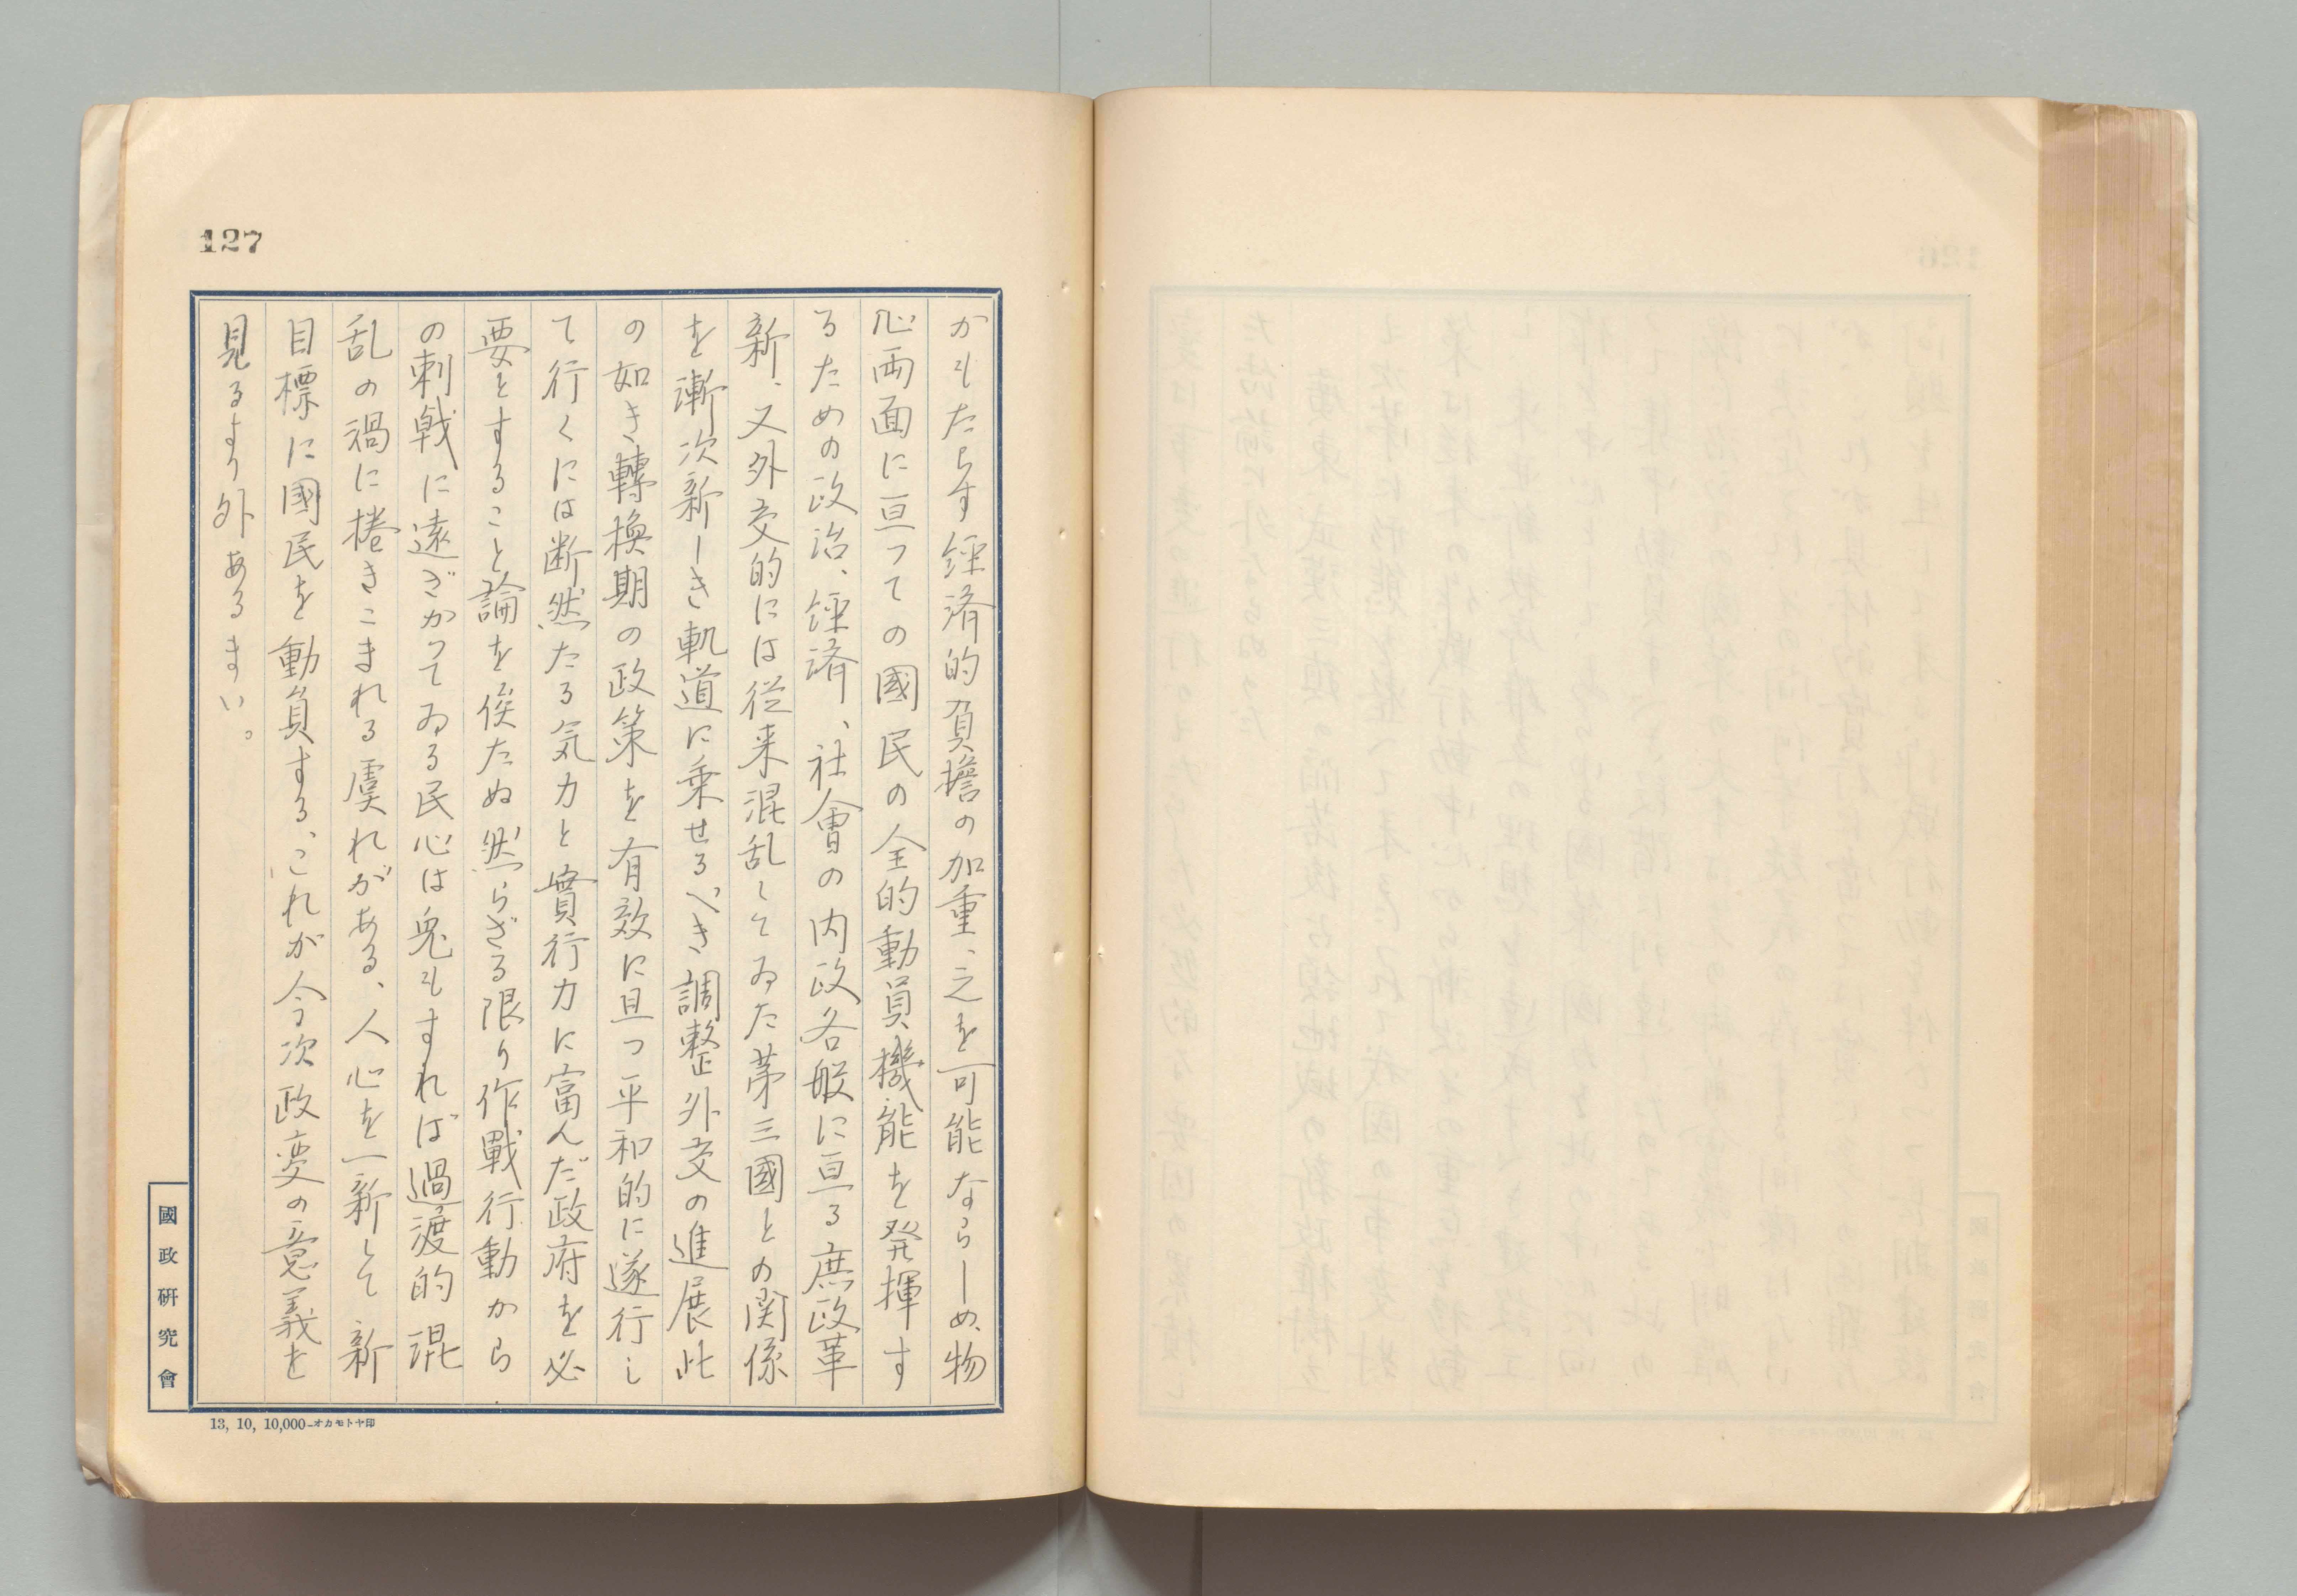 127
かもたらす経済的負擔の加重、之を可能ならしめ、物
心両面に亘つての國民の全的動員機能を発揮す
るための政治、経済、社會の内政各般に亘る庶政革
新、又外交的には従来混乱してゐた第三國との関係
を漸次新しき軌道に乗せるべき調整外交の進展此
の如き轉換期の政策を有效に且つ平和的に遂行し
て行くには断然たる気力と實行力に富んだ政府を必
要とすること論を俟たぬ然らざる限り作戰行動から
の刺戟に遠ざかつてゐる民心は兎もすれば過渡的混
乱の禍に捲きこまれる虞れがある、人心を一新して新
目標に國民を動員する、これが今次政変の意義を
見るより外あるまい。
國政研究會
13, 10, 10,000—オカモトヤ印